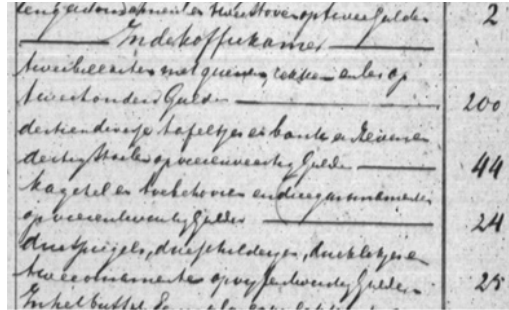 en twee stoven op twee Gulden 2
In de koffiekamer
twee biljarten met queues, rekken en les op
tweehonderd Gulden 200
dertien diverse tafeltjes en bank en
dertig Stoelen op vierenveertig Gulden 44
Kagchel en toebehooren en drie gasornamenten
op vierentwintig Gulden 24
drie Spiegels, drie schilderijen, drie kleedjes en
twee ornamenten op vijfentwintig Gulden 25
In het buffet